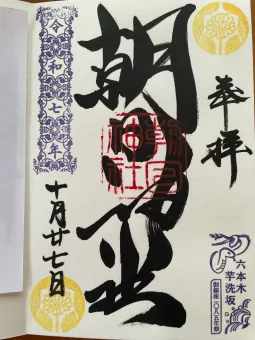 奉拝
朝日神社
朝日
神社
令和七年
十月廿七日
六本木
芋洗坂
御鎮座一〇八五年祭